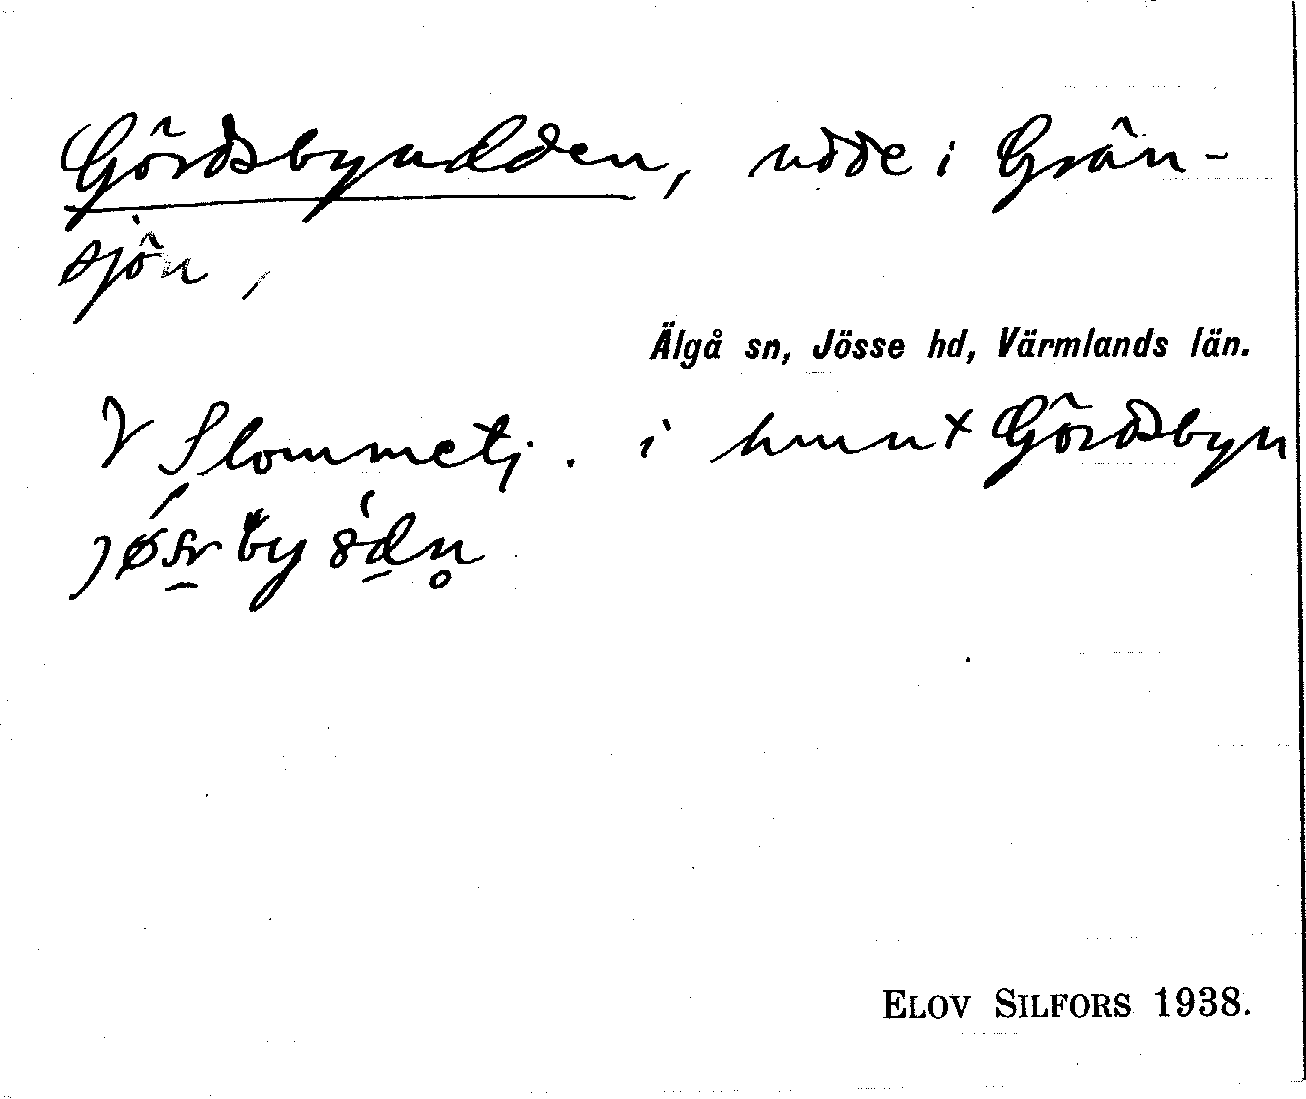 Gördsbyudden, udde i Grän-
sjön,
Älgå sn, Jösse hd, Värmlands län.
V Slommetj. i hmn t Gördsbyn
ELOV SILFORS 1938.